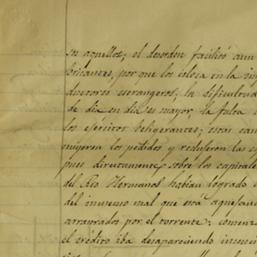 en aquellos; el desorden fatilicó aun
bricantes, por que los coloca en la im
divisores estrangeros; la dificultad
de dia en dia es mayor, la falta
los ejércitos beligerantes; estas cau
los pedidos y redujeron las
pues directamente sobre los capitales
del Rio Hermanos habian logrado
del inmenso mal que está aque
arrastrados por el torrente; comenz
el crédito iba desapareciendo